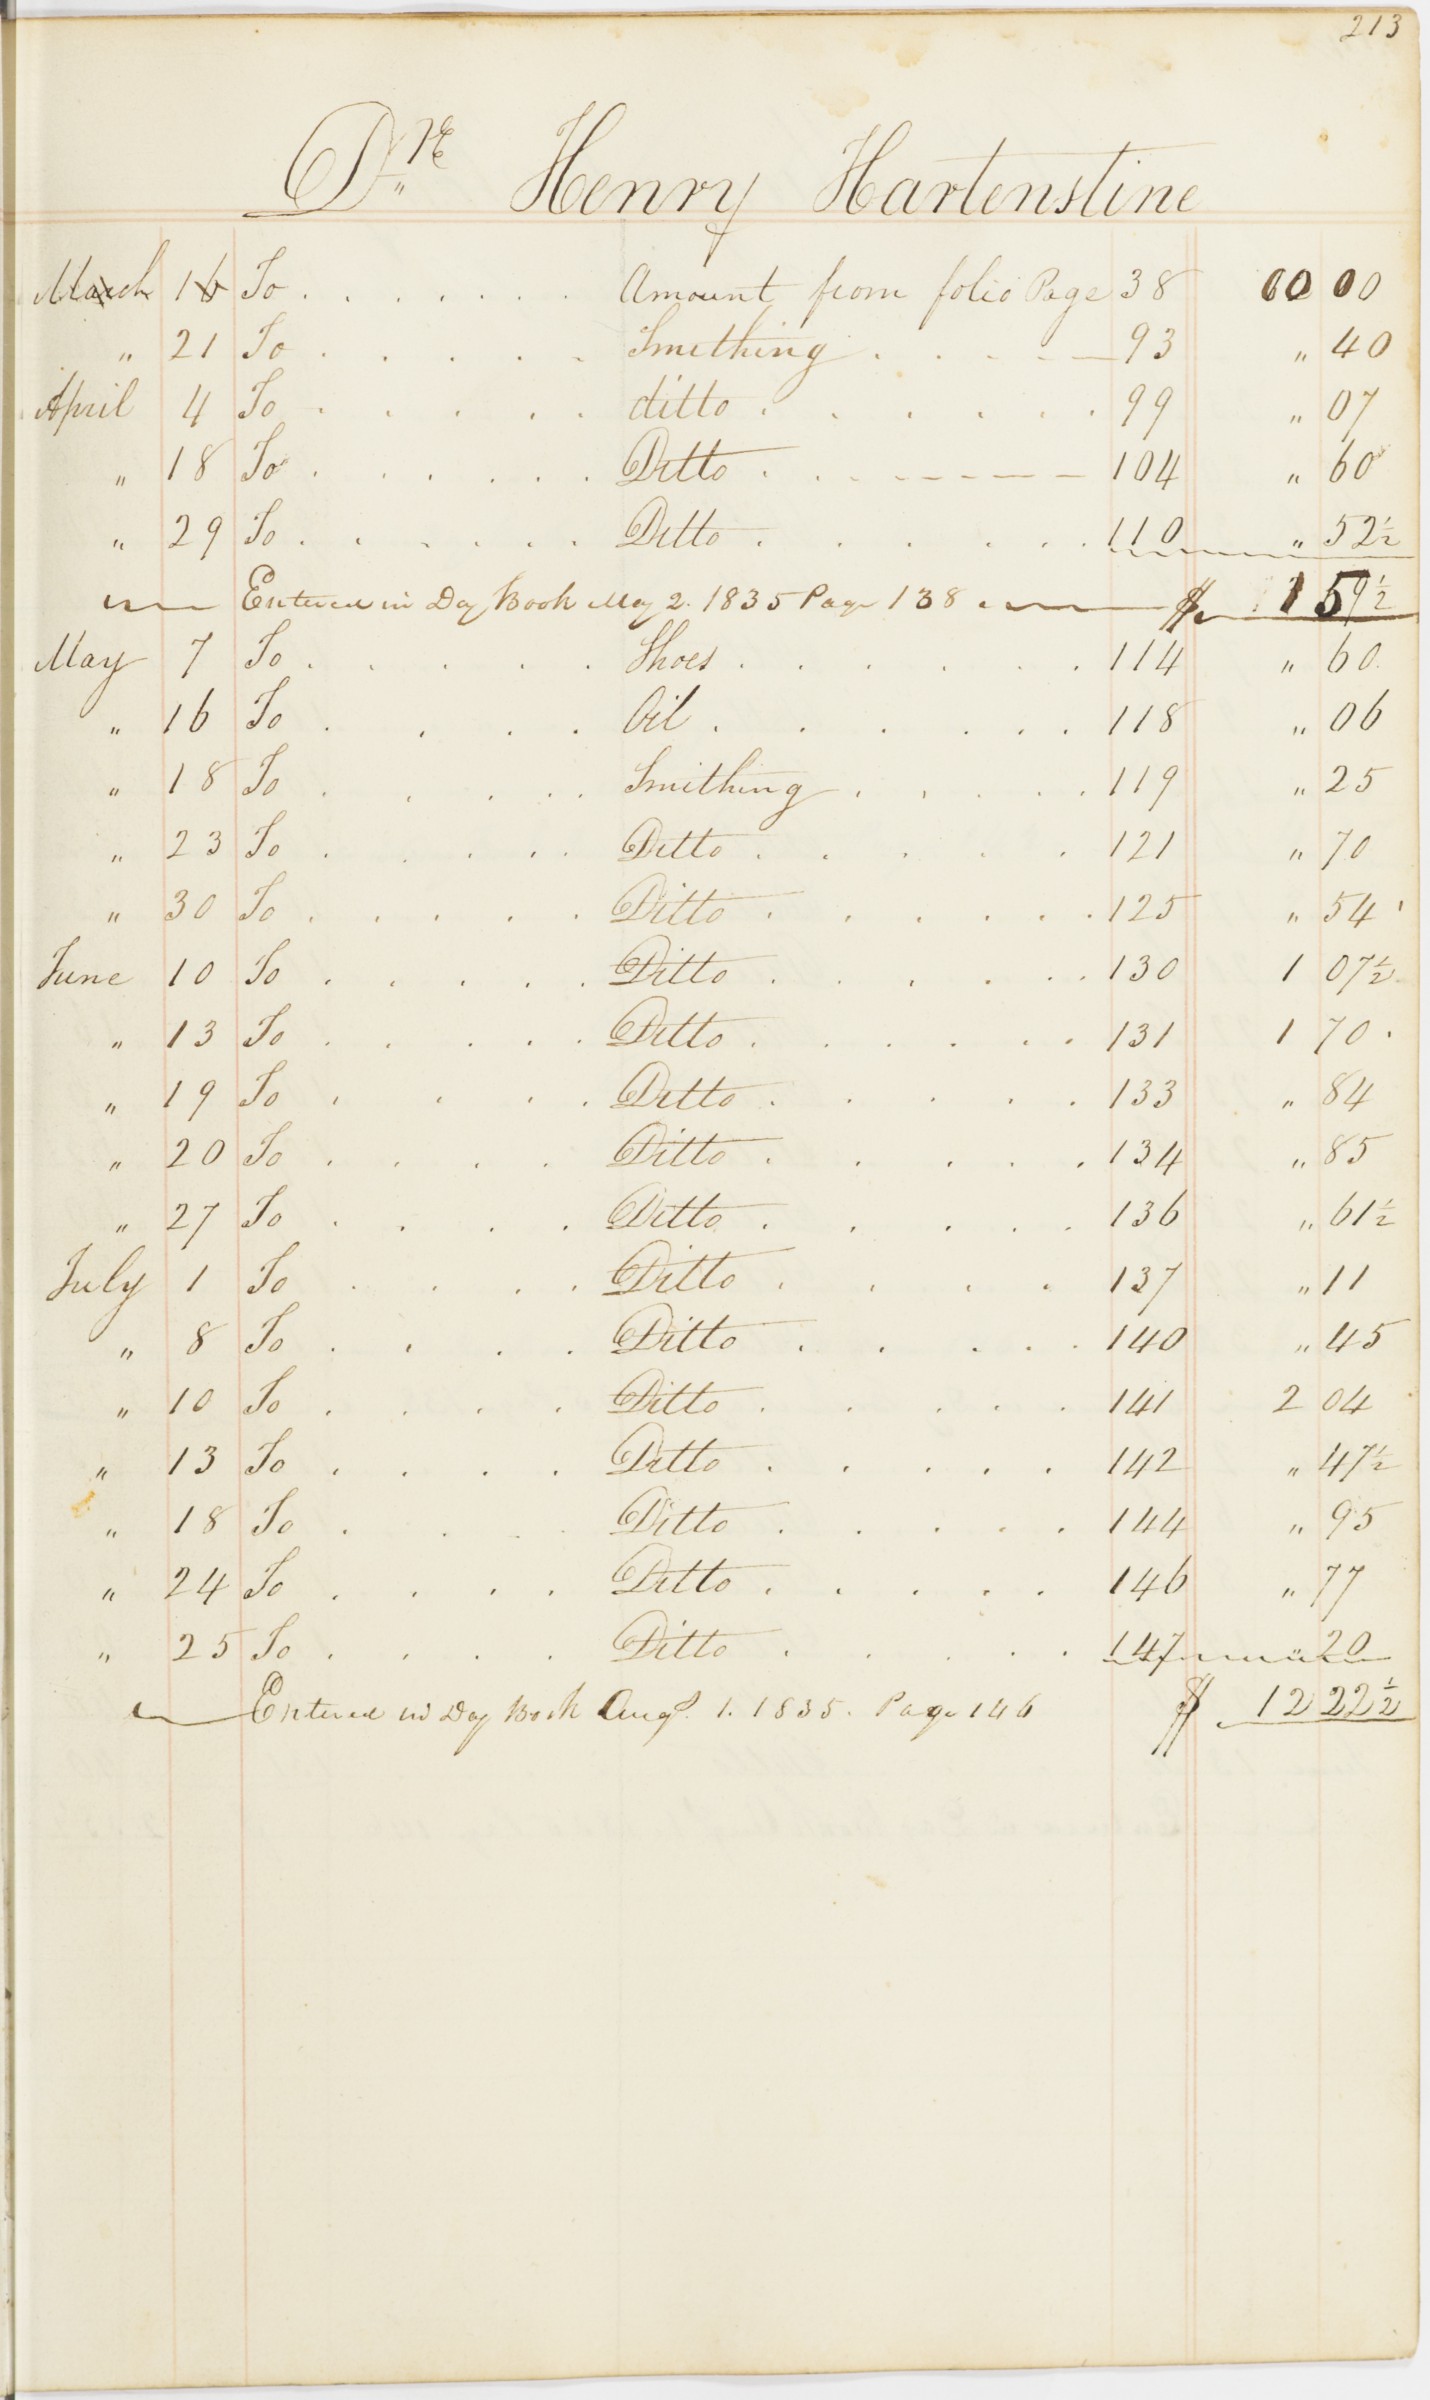 213
Dr. Henry Hartenstine
March 16 To . . . . . . . Amount from folio Page 38 00 00
" 21 To . . . . . Smithing . . . . 93 " 40
April 4 To . . . . . ditto . . . . . . 99 " 07
" 18 To . . . . . . Ditto . . - - - - 104 " 60
" 29 To . . . . . . Ditto . . . . . . 110 " 52½
Entered in Day Book May 2. 1835 Page 138 $ 1 59½
May 7 To . . . . . Shoes . . . . . . 114 " 60
" 16 To . . . . Oil . . . . . . 118 " 06
" 18 To . . . . . Smithing . . . . . 119 " 25
" 23 To . . . . . Ditto . . . . . 121 " 70
" 30 To . . . . . Ditto . . . . . . 125 " 54
June 10 To . . . . . Ditto . . . . . . 130 1 07½
" 13 To . . . . . Ditto . . . . . . 131 1 70
" 19 To . . . . Ditto . . . . . 133 " 84
" 20 To . . . . Ditto . . . . . 134 " 85
" 27 To . . . . Ditto . . . . . 136 " 61½
July 1 To . . . . Ditto . . . . 137 " 11
" 8 To . . . . Ditto . . . . . 140 " 45
" 10 To . . . . Ditto . . . . . 141 2 04
" 13 To . . . . Ditto . . . . . 142 " 47½
" 18 To . . . . Ditto . . . . . 144 " 95
" 24 To . . . . Ditto . . . . . 146 " 77
" 25 To . . . . Ditto . . . . . 147 " 20
Entered in Day Book Augt. 1. 1835. Page 146 $ 12 22½